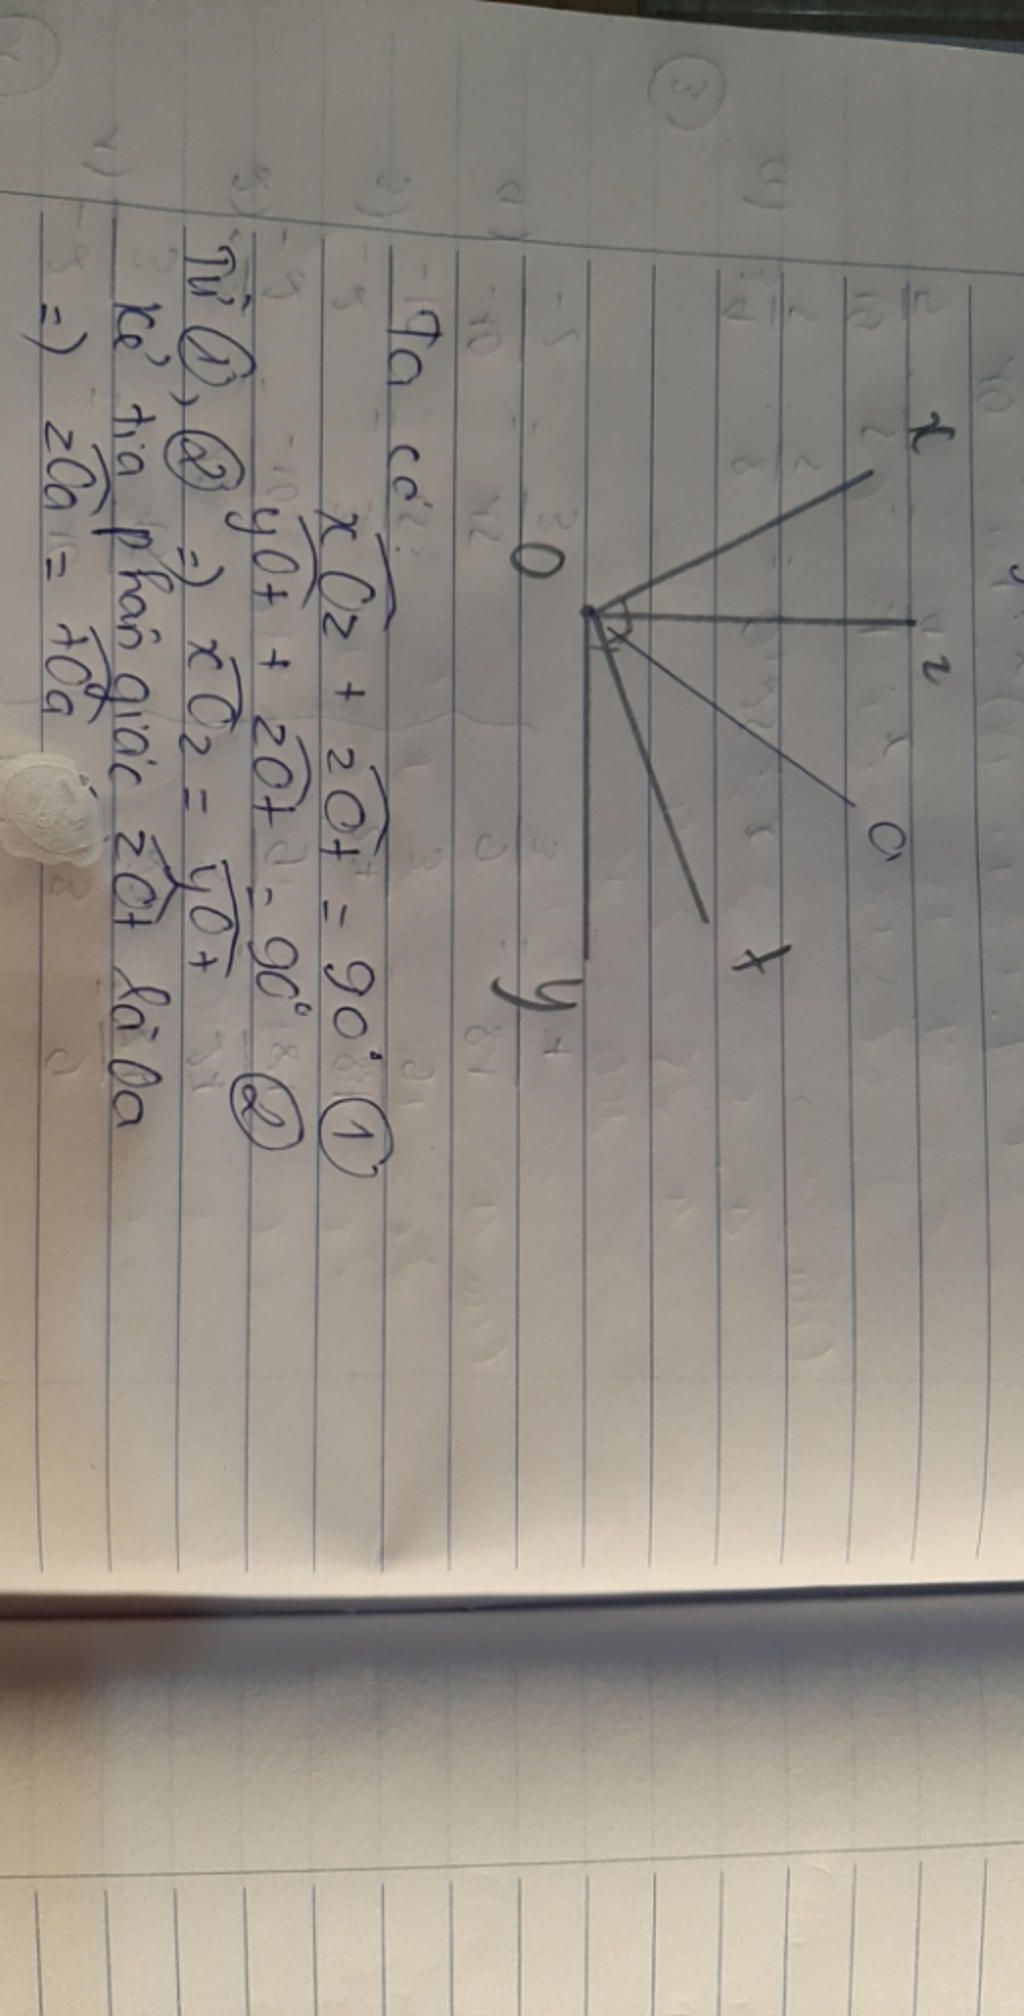 x
z
a
t
O
y
Ta có:
xOz + zOt = 90° ①
yOt + zOt = 90° ②
Từ ①, ② => xOz = yOt
Kẻ tia phân giác zOt là Oa
=> zOa = tOa